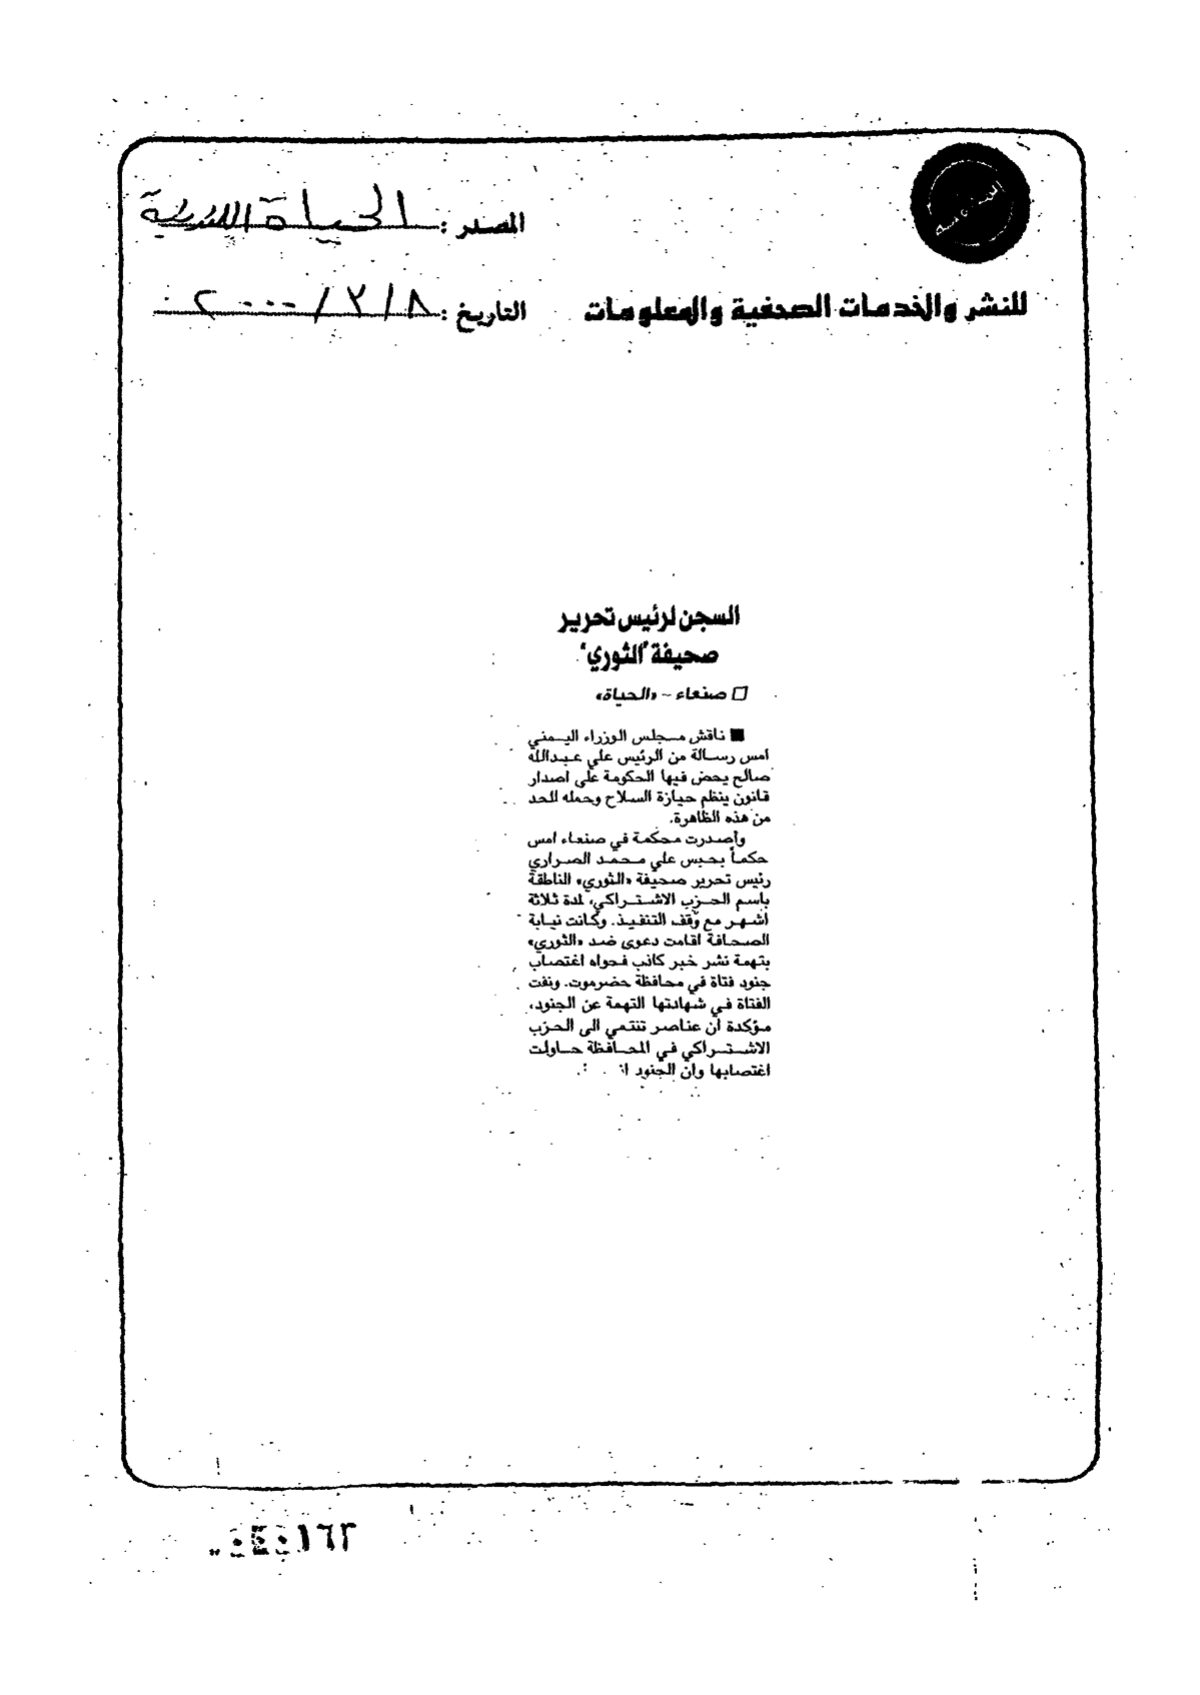 المصدر : الحياة اللندنية
للنشر والخدمات الصحفية والمعلومات
التاريخ : ٨ / ٣ / ٢٠٠٠
السجن لرئيس تحرير
صحيفة "الثوري"
□ صنعاء - «الحياة»
■ ناقش مجلس الوزراء اليمني
امس رسالة من الرئيس علي عبدالله
صالح يحض فيها الحكومة على اصدار
قانون ينظم حيازة السلاح وحمله للحد
من هذه الظاهرة.
وأصدرت محكمة في صنعاء امس
حكماً بحبس علي محمد الصراري
رئيس تحرير صحيفة «الثوري» الناطقة
باسم الحزب الاشتراكي، لمدة ثلاثة
اشهر مع وقف التنفيذ. وكانت نيابة
الصحافة اقامت دعوى ضد «الثوري»
بتهمة نشر خبر كاذب فحواه اغتصاب
جنود فتاة في محافظة حضرموت. ونفت
الفتاة في شهادتها التهمة عن الجنود،
مؤكدة ان عناصر تنتمي الى الحزب
الاشتراكي في المحافظة حاولت
اغتصابها وان الجنود